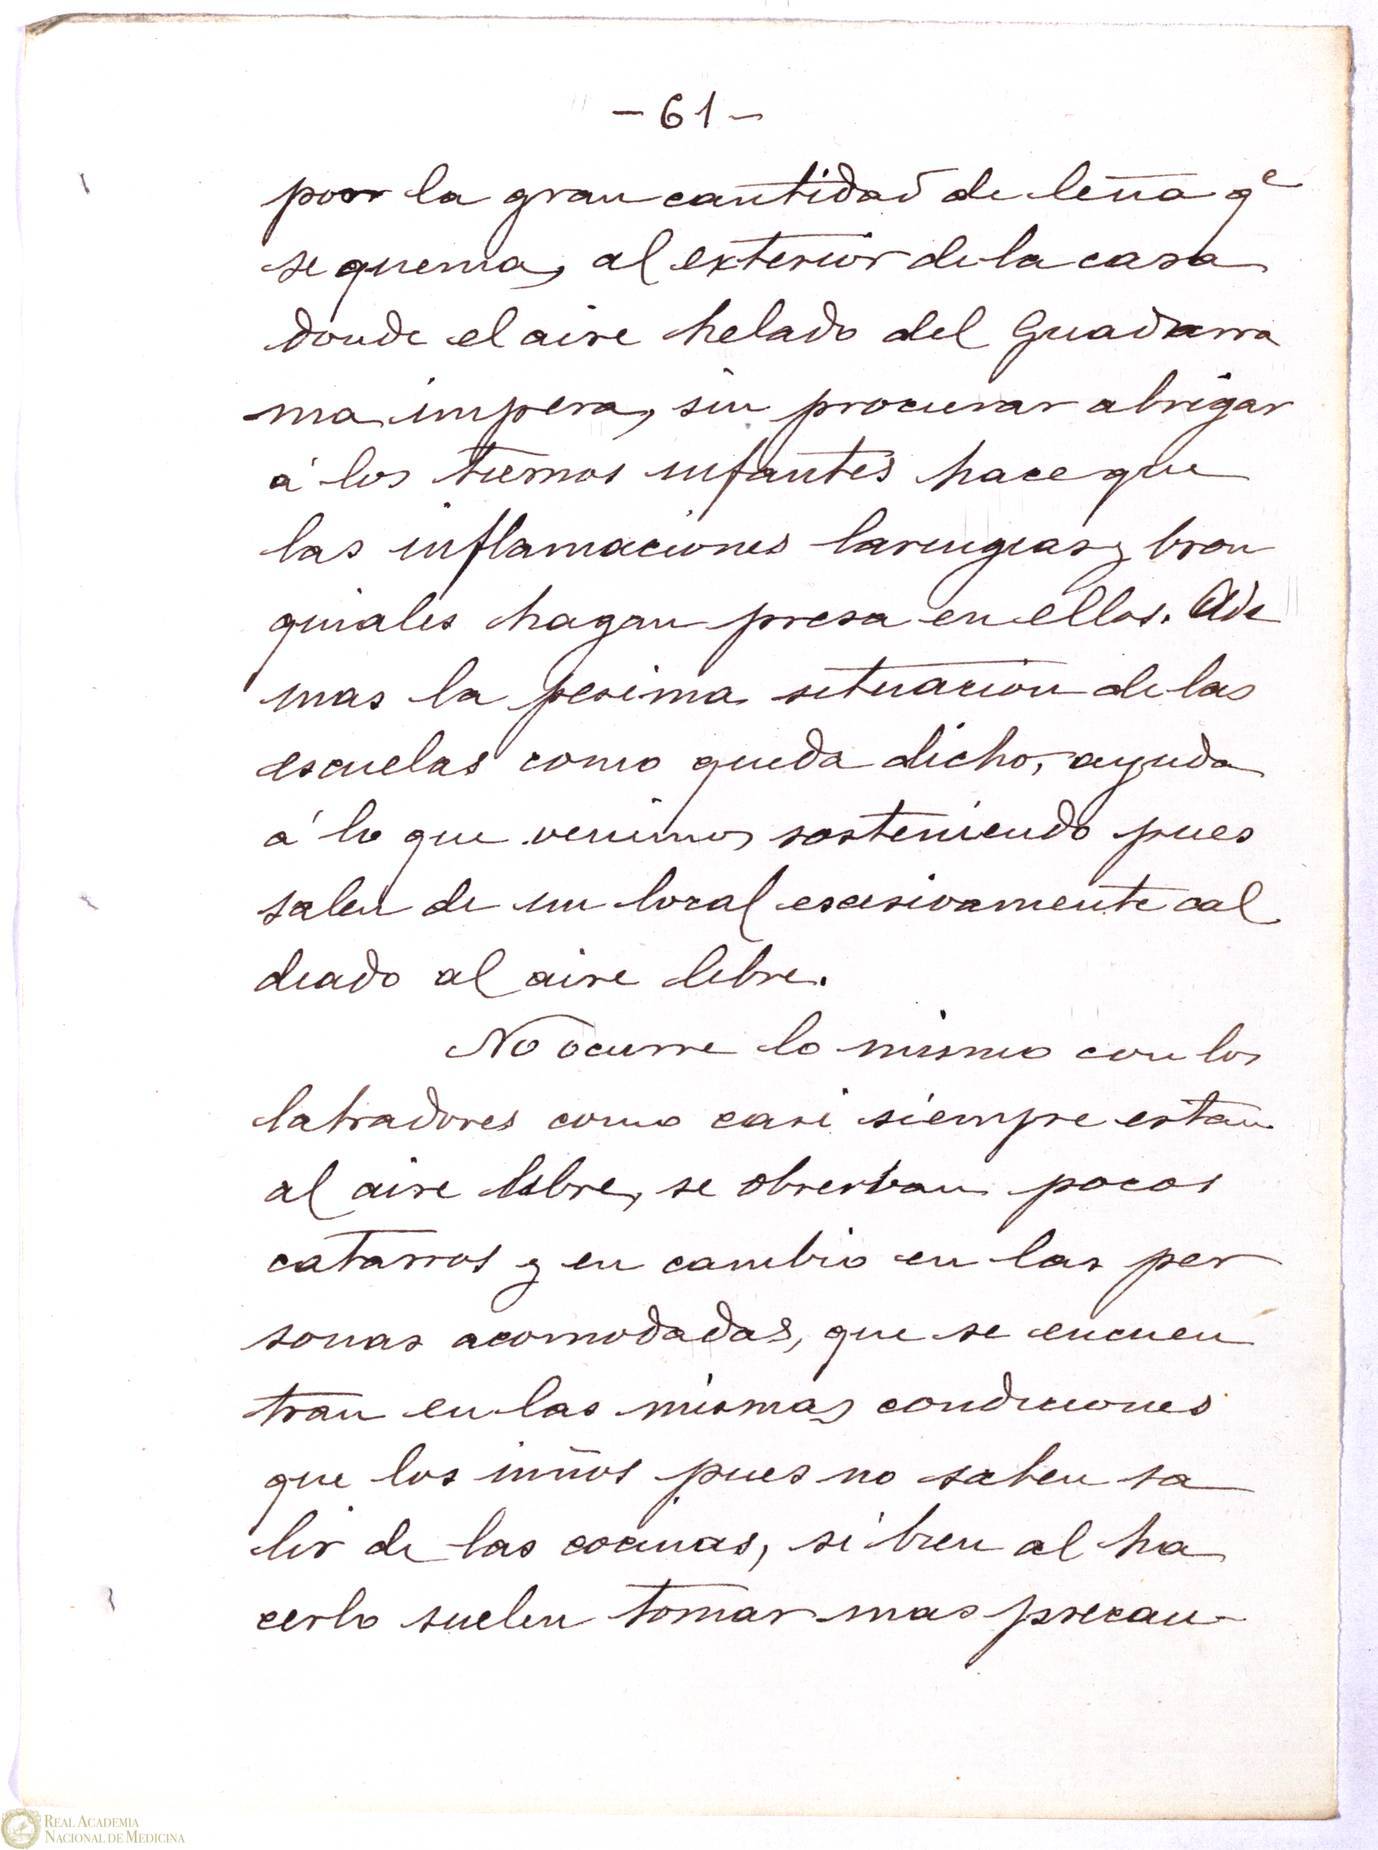 - 61 -
por la gran cantidad de leña qe
se quema, al exterior de la casa
donde el aire helado del Guadarra
ma impera, sin procurar abrigar
á los tiernos infantes hace que
las inflamaciones laringeas y bron
quiales hagan presa en ellos. Ade
mas la pesima situacion de las
escuelas como queda dicho, ayuda
á lo que venimos sosteniendo pues
salen de un local escesivamente cal
deado al aire libre.
No ocurre lo mismo con los
labradores como casi siempre estan
al aire libre, se observan pocos
catarros y en cambio en las per
sonas acomodadas, que se encuen
tran en las mismas condiciones
que los niños pues no saben sa
lir de las cocinas, si bien al ha
cerlo suelen tomar mas precau-
REAL ACADEMIA
NACIONAL DE MEDICINA